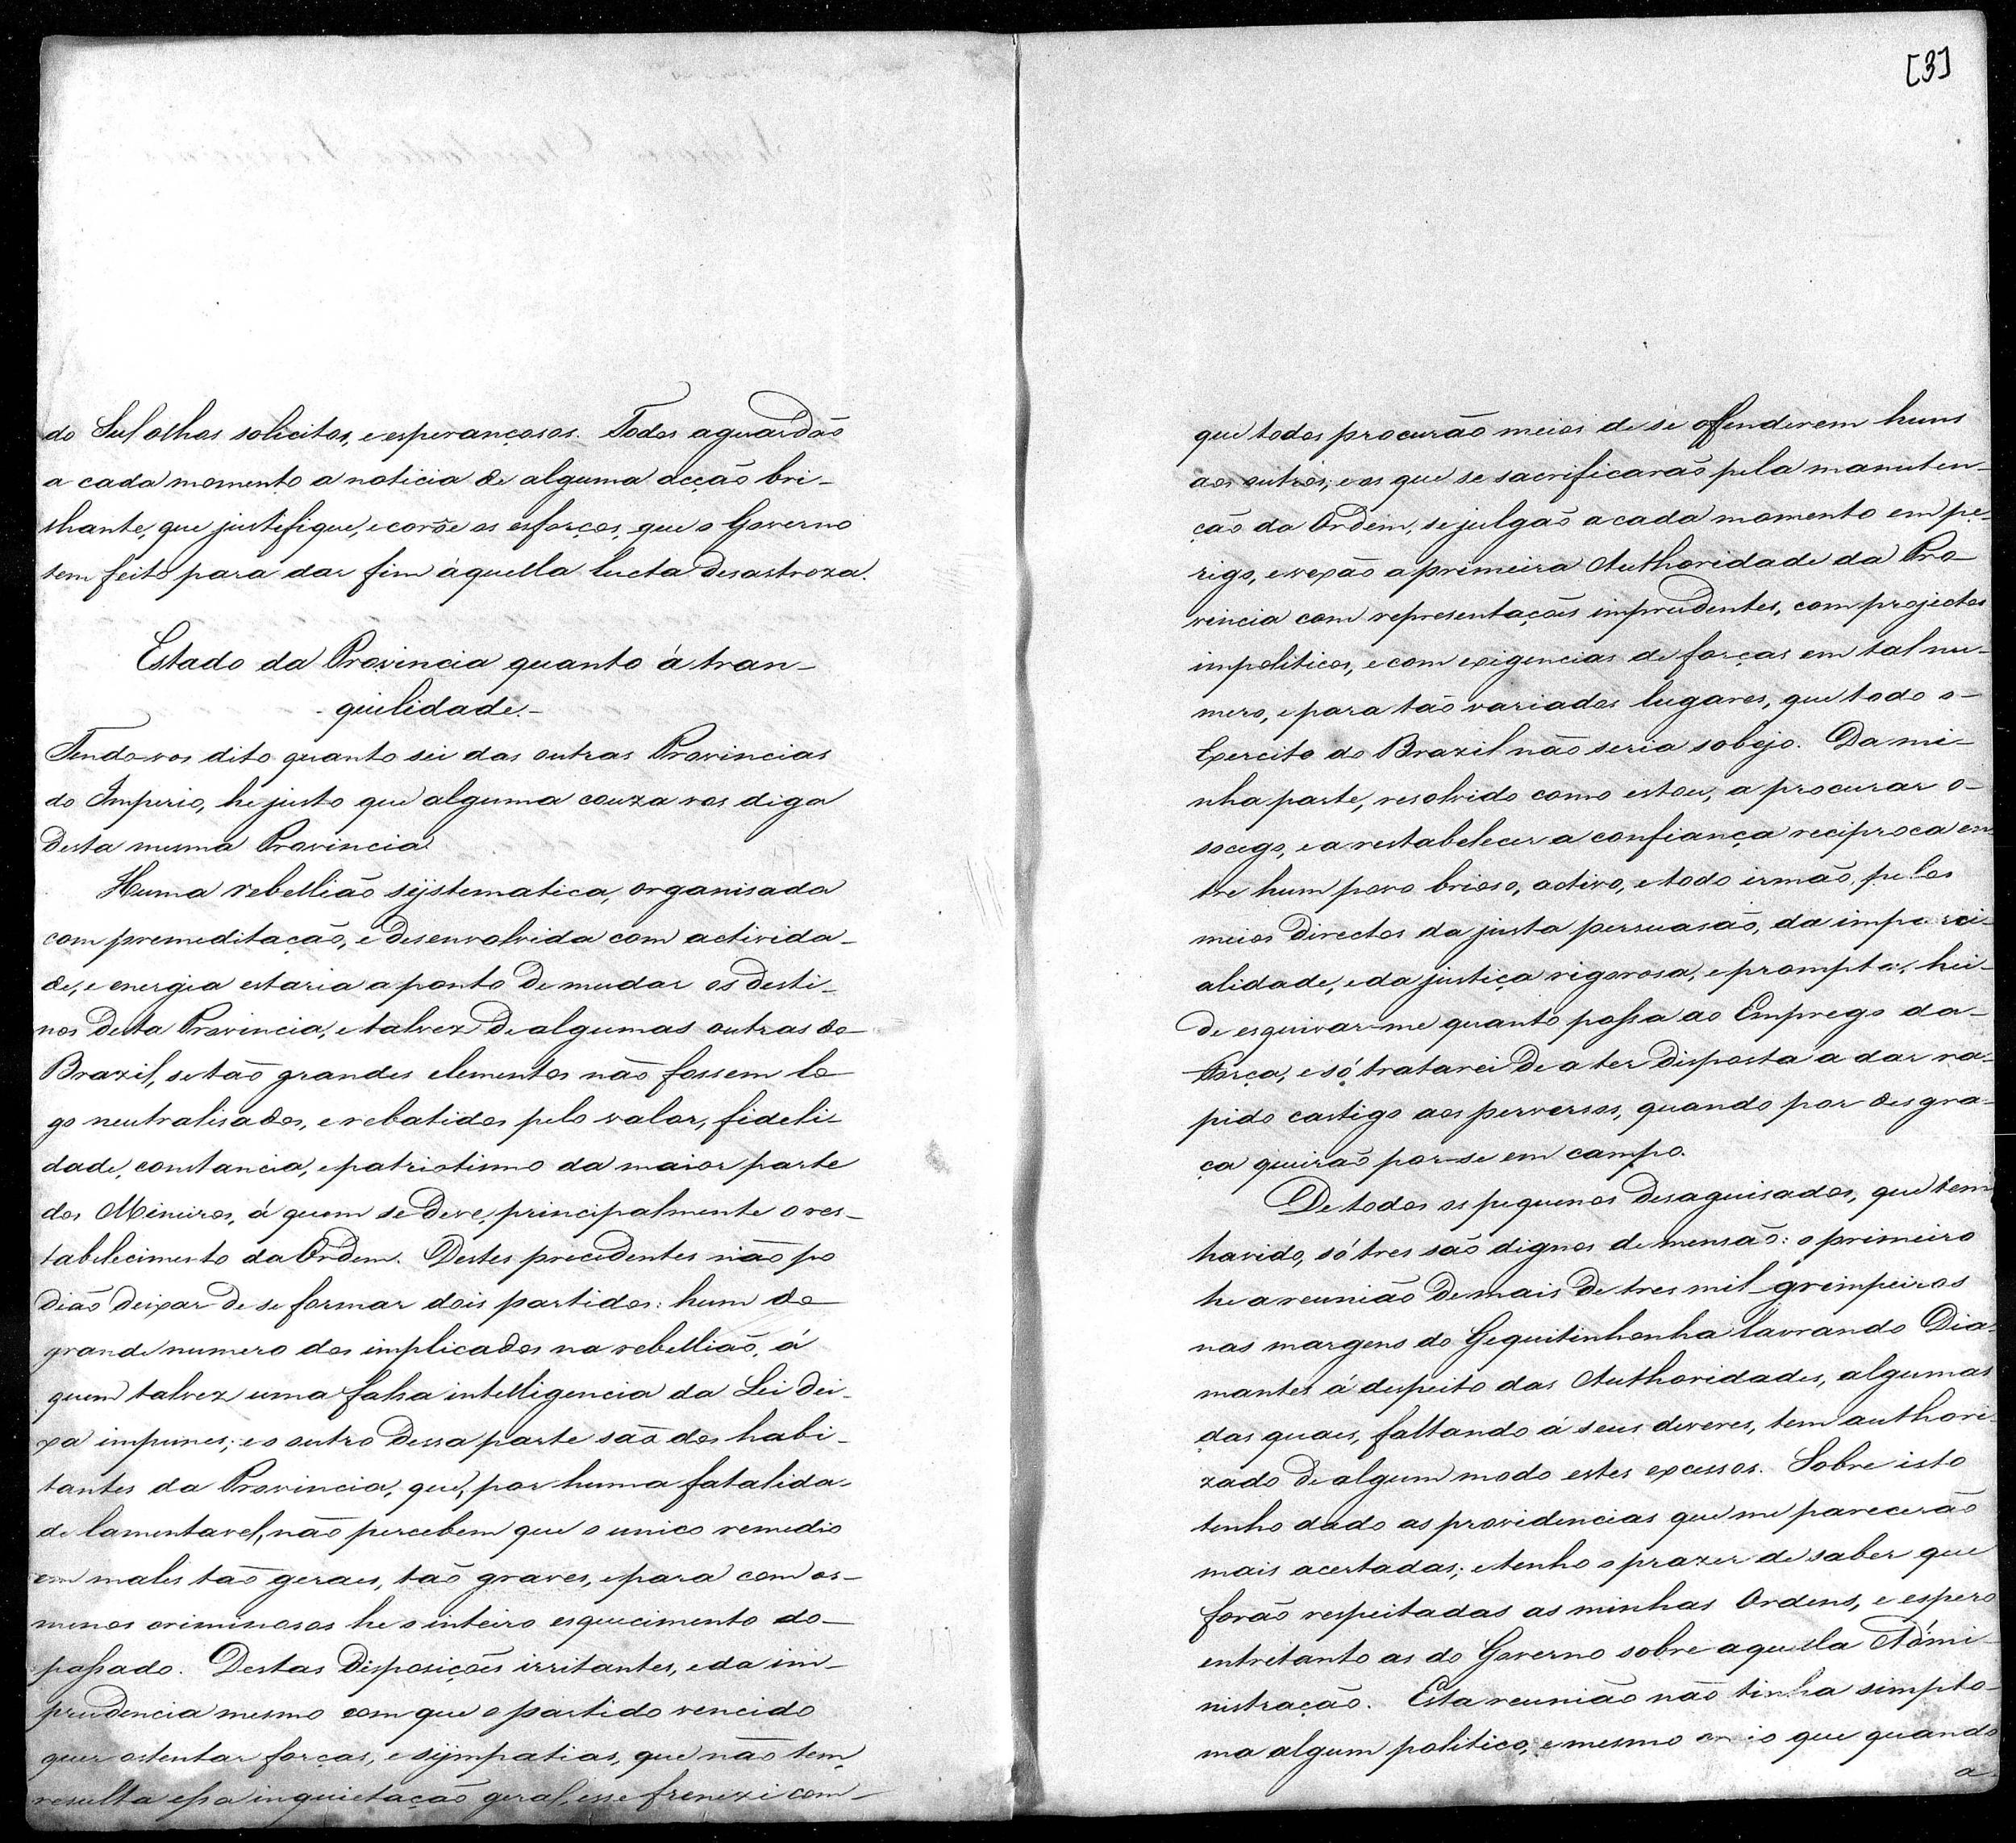 do Sul olhos solicitos, e esperançosos. Todos aguardão
a cada momento a noticia de alguma acção bri-
lhante, que justifique, e corôe os esforços, que o Governo
tem feito para dar fim áquella lucta desastroza.
Estado da Provincia quanto á tran-
-quilidade.-
Tendo-vos dito quanto sei das outras Provincias
do Imperio, he justo que alguma couza vos diga
desta mesma Provincia.
Huma rebellião systematica, organisada
com premeditação, e desenvolvida com activida-
de, e energia estaria a ponto de mudar os desti-
nos desta Provincia, e talvez de algumas outras do
Brazil, se tão grandes elementos não fossem lo
go neutralisados, e rebatidos pelo valor, fideli-
dade, constancia, e patriotismo da maior parte
dos Mineiros, á quem se deve principalmente o res-
tabelecimento da Ordem. Destes precedentes não po
dião deixar de se formar dois partidos: hum do
grande numero dos implicados na rebellião, á
quem talvez uma falsa intelligencia da Lei dei-
xa impunes; e o outro dessa parte sãa dos habi-
tantes da Provincia, que, por huma fatalida-
de lamentavel, não percebem que o unico remedio
em males tão geraes, tão graves, e para com os-
menos criminosos he o inteiro esquecimento do-
passado. Destas disposições irritantes, e da im-
prudencia mesmo com que o partido vencido
quer ostentar forças, e sympatias, que não tem,
resulta essa inquietação geral, esse frenezi com-
[3]
que todos procurão meios de se offenderem huns
aos outros; e os que se sacrificarão pela manuten-
ção da Ordem, se julgão a cada momento em pe-
rigo, e vexão a primeira Authoridade da Pro-
vincia com representações imprudentes, com projectos
impoliticos, e com exigencias de forças em tal nu-
mero, e para tão variados lugares, que todo o-
Exercito do Brazil não seria sobejo. Da mi-
nha parte, resolvido como estou, a procurar o-
socego, e a restabelecer a confiança reciproca en
tre hum povo brioso, activo, e todo irmão, pelos
meios directos da justa persuasão, da imparci-
alidade, e da justiça rigorosa, e prompta, hei-
de esquivar-me quanto possa ao Emprego da-
força, e só tratarei de a ter disposta a dar ra-
pido castigo aos perversos, quando por desgra-
ça queirão por-se em campo.
De todos os pequenos desaguisados, que tem
havido, só tres são dignos de mensão: o primeiro
he a reunião de mais de tres mil grimpeiros
nas margens do Gequitinhonha lavrando Dia-
mantes á despeito das Authoridades, algumas
das quaes, faltando á seus deveres, tem authori-
zado de algum modo estes excessos. Sobre isto
tenho dado as providencias que me parecerão
mais acertadas; e tenho o prazer de saber que
forão respeitadas as minhas Ordens, e espero
entretanto as do Governo sobre aquella Admi-
nistração. Esta reunião não tinha simpto-
ma algum politico, e mesmo creio que quando
a